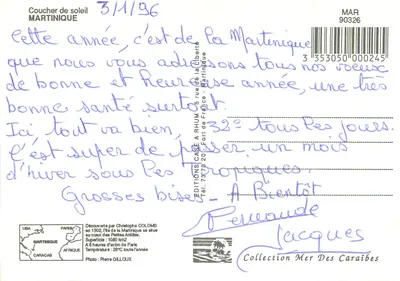 Coucher de soleil
MARTINIQUE
3/1/96
MAR
90326
3 353050 000245
Cette année, c'est de la Martinique
que nous vous adressons tous nos voeux
de bonne et heureuse année, une très
bonne santé surtout.
Ici tout va bien, 32° tous les jours.
C'est super de passer un mois
d'hiver sous les tropiques.
Grosses bises - A Bientôt
Fernande
Jacques
EDITIONS CASE A RHUM 5 rue de la Liberté
Tél. 73 73 20 Fort de France - Martinique
USA
PARIS
MARTINIQUE
CARACAS
AFRIQUE
Découverte par Christophe COLOMB
en 1502, l'île de la Martinique se situe
au cœur des Petites Antilles.
Superficie : 1080 km2
A 8 heures d'avion de Paris
Température : 26°C toute l'année
Photo : Pierre GILLOUX
Collection Mer Des Caraïbes